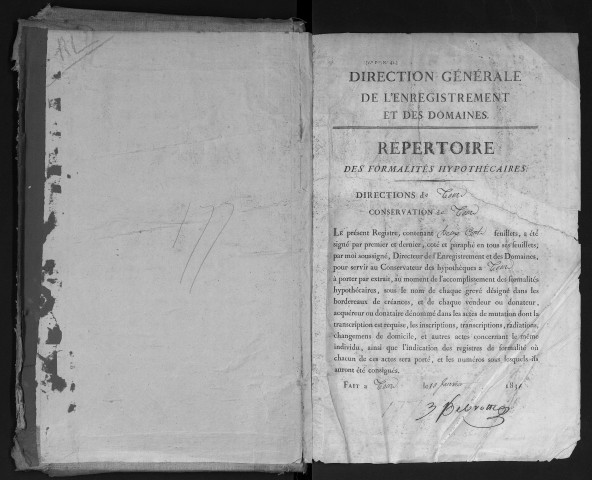 DIRECTION GÉNÉRALE
DE L'ENREGISTREMENT
ET DES DOMAINES.
RÉPERTOIRE
DES FORMALITÉS HYPOTHÉCAIRES.
DIRECTIONS de
CONSERVATION
LE présent Registre, contenant feuillets, a été
signé par premier et dernier, coté et paraphé en tous ses feuillets,
par moi soussigné, Directeur de l'Enregistrement et des Domaines,
pour servir au Conservateur des hypothèques à
à porter par extrait, au moment de l'accomplissement des formalités
hypothécaires, sous le nom de chaque grevé désigné dans les
bordereaux de créances, et de chaque vendeur ou donateur,
acquéreur ou donataire dénommé dans les actes de mutation dont la
transcription est requise, les inscriptions, transcriptions, radiations,
changemens de domicile, et autres actes concernant le même
individu, ainsi que l'indication des registres de formalité où
chacun de ces actes sera porté, et les numéros sous lesquels ils
auront été consignés.
FAIT à